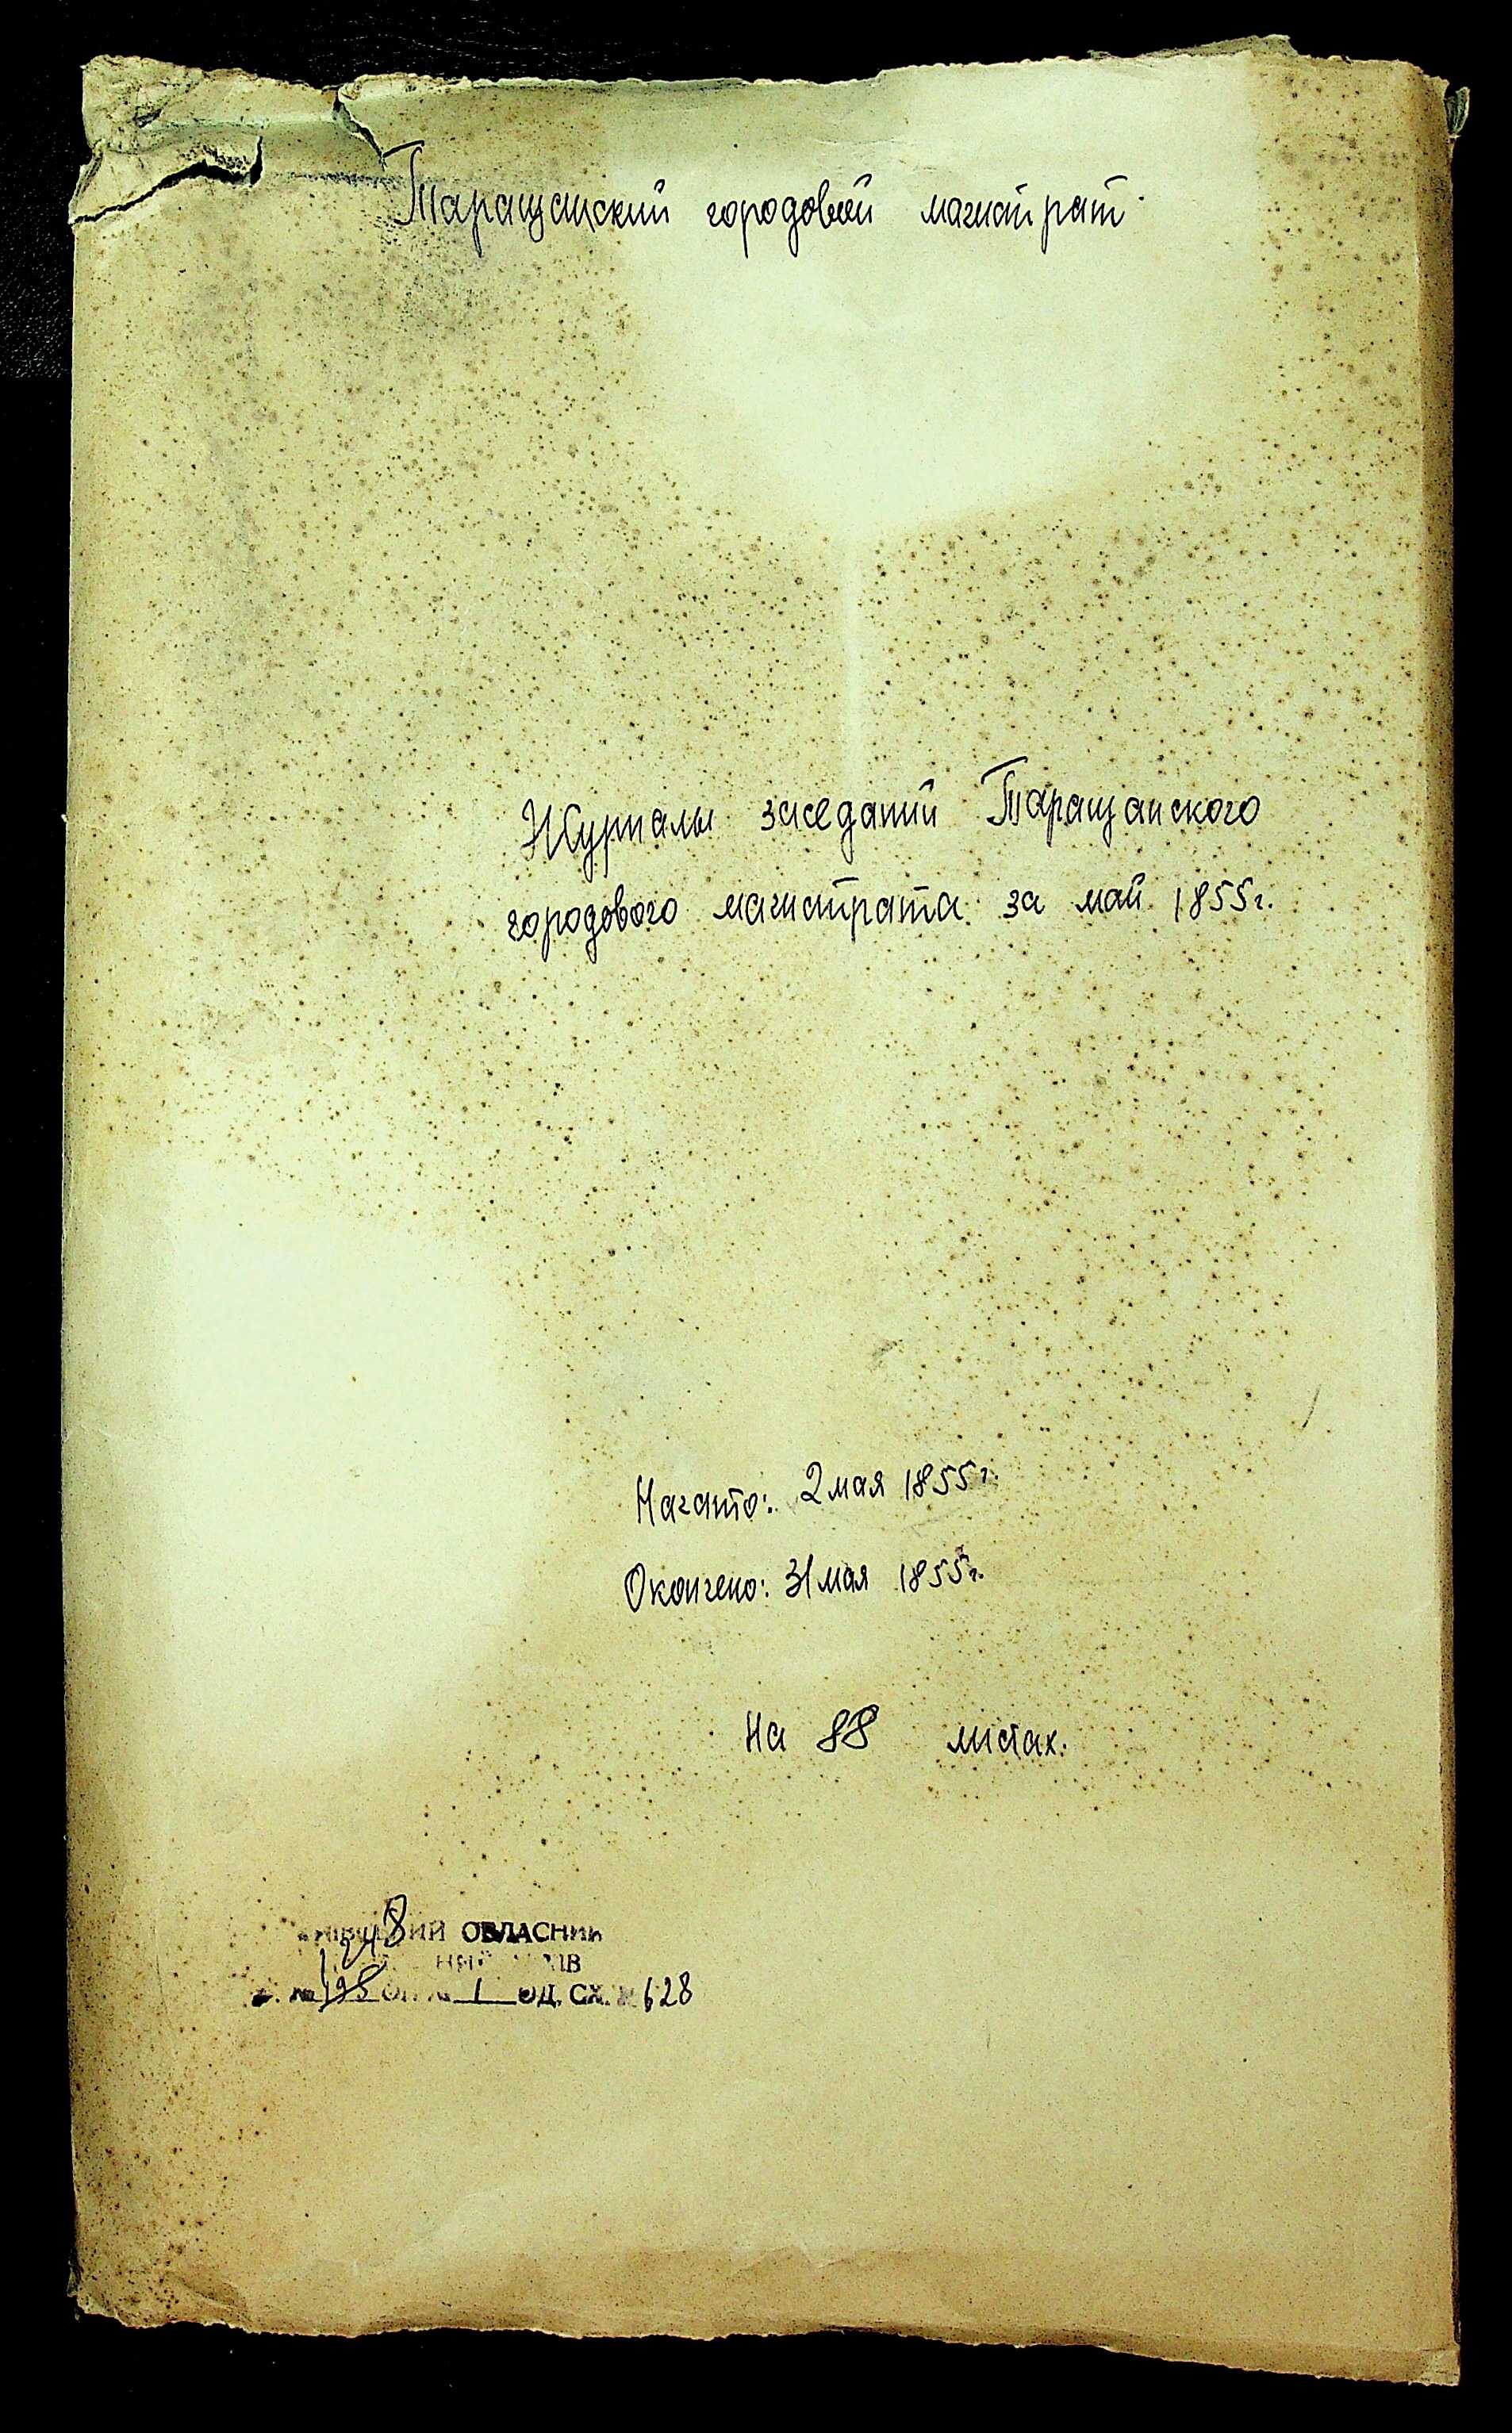 Таращанский городовой магистрат
Журналы заседаний Таращанского
городового магистрата за май 1855г.
Начато: 2 мая 1855г.
Окончено: 31 мая 1855г.
На 88 листах.
ОБЛАСНИЙ
1248
1 ОД. СХ. 628